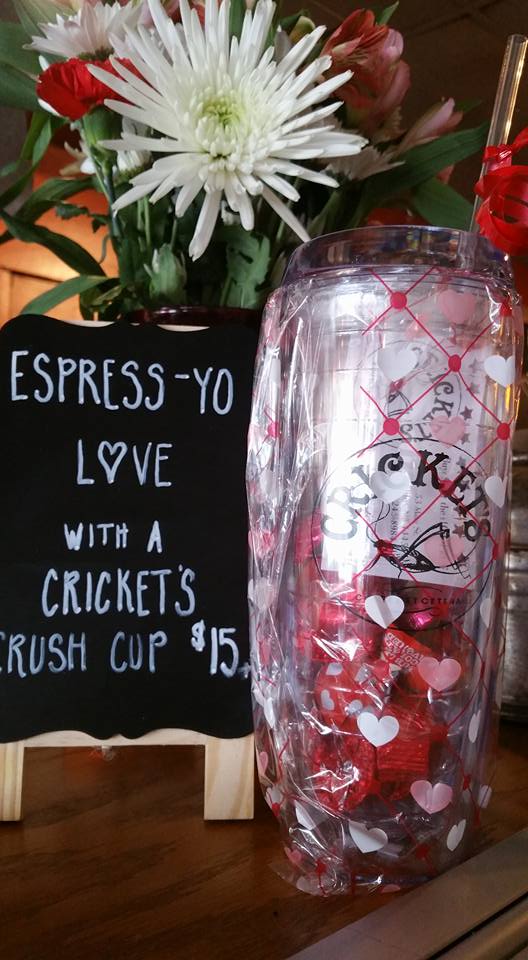 ESPRESS-YO
LOVE
WITH A
CRICKET'S
CRUSH CUP $15.
CRICKETS